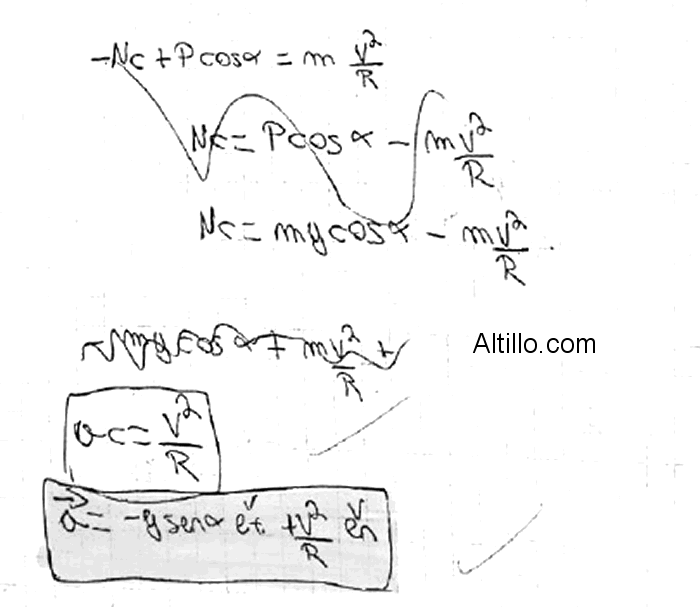 -Nc + P cos α = m v²/R
Nc = P cos α - m v²/R
Nc = mg cos α - m v²/R
mg cos α + m v²/R +
Altillo.com
ac = v²/R
a⃗ = -g sen α ět + v²/R ěn